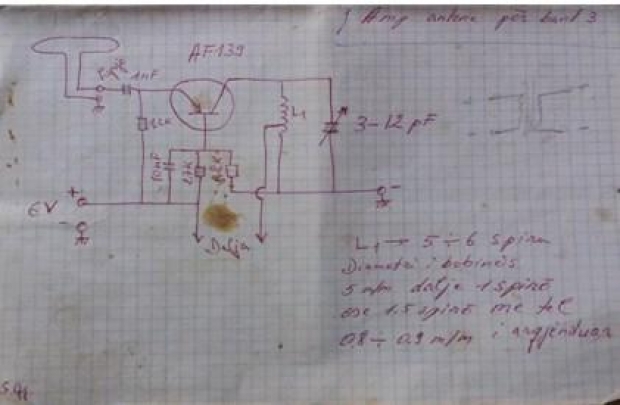 Amp antene për band 3
AF139
1nF
L1
3-12 pF
10nF
27K
6V
+
-
-
Dalja
L1 → 5 ÷ 6 spira
Diametri i bobinës
5 m/m dalje 1 spirë
ose 1,5 spirë me tel
0,8 ÷ 0,9 m/m i argjenduar